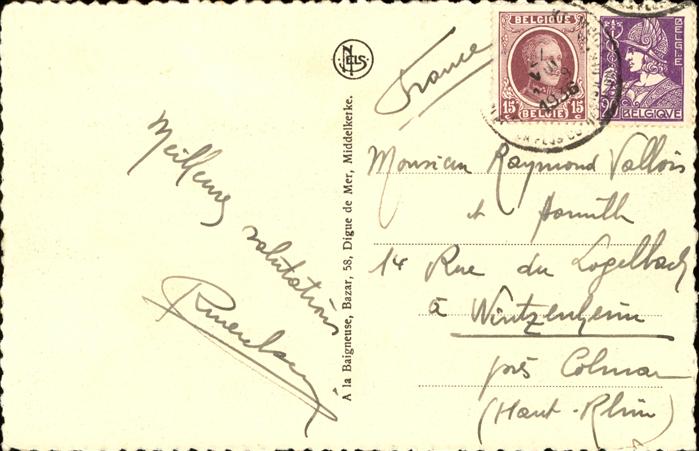 Meilleures
salutations
À la Baigneuse, Bazar, 58, Digue de Mer, Middelkerke.
NELS
France
BELGIQUE
15 15
BELGIE
BELGIE
90 BELGIQVE
1936
Monsieur Raymond Vallois
et famille
14 Rue du Logelbach
à Wintzenheim
près Colmar
(Haut-Rhin)